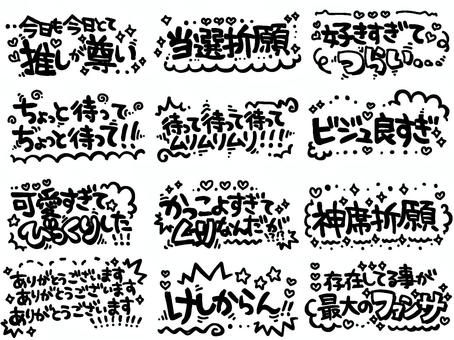 今日も今日とて
推しが尊い
当選祈願
好きすぎて
つらい…
ちょっと待って
ちょっと待って!!
待って待って待って
ムリムリムリ!!!
ビジュ良すぎ
可愛すぎて
びっくりした
!!!
かっこよすぎて
ムリなんだが
!!!
神席祈願
ありがとうございます
ありがとうございます
ありがとうございます
!!!!!!!!
けしからん!!
存在してる事が
最大のファンサ